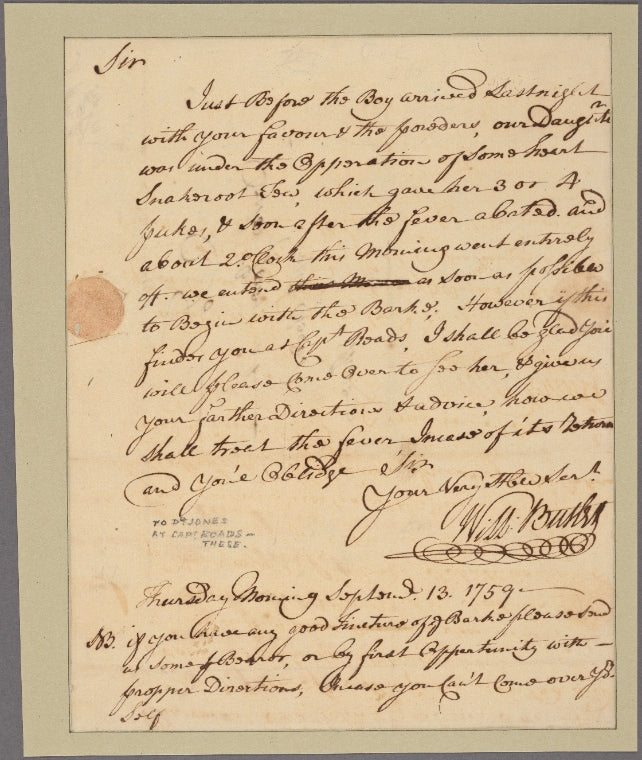 Sir
Just Before the Boy arrived Lastnight
with your favour & the powders, our Daugh.r
was under the Opperation of Some heart
Snakeroot Tew, which gave her 3 or 4
pukes, & Soon after the fever abated. and
about 2. Clock this Morning went entirely
off. we entend as Soon as possible
to Begin with the Barke. However if this
findes you at Capt Roads, I shall be glad you
will please Come Over to See her, & give us
your farther Directions & advice, how we
shall treat the fever Incase of its Return
and you'l Oblidge Sir
Your Very Hble Sert.
Will: Busby
TO Dr JONES
AT CAPt ROADS —
THESE.
Thursday Morning Septemr. 13. 1759 —
NB. if you have any good Tincture of ye Barke please Send
us Some ye Bearor, or by first Opportunity with —
propper Directions, Incase you Can't Come over Yr.
Self